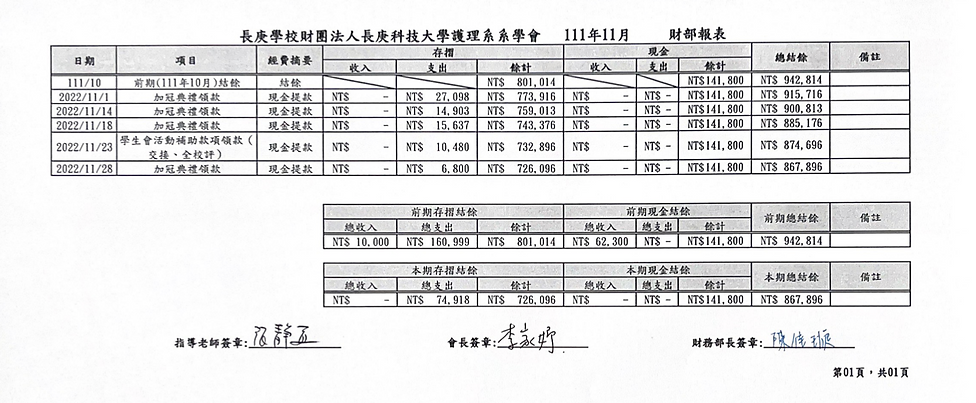 長庚學校財團法人長庚科技大學護理系系學會 111年11月 財部報表
日期 項目 經費摘要 存摺 現金 總結餘 備註
收入 支出 餘計 收入 支出 餘計
111/10 前期(111年10月)結餘 結餘 NT$ 801,014 NT$141,800 NT$ 942,814
2022/11/1 加冠典禮領款 現金提款 NT$ - NT$ 27,098 NT$ 773,916 NT$ - NT$ - NT$141,800 NT$ 915,716
2022/11/14 加冠典禮領款 現金提款 NT$ - NT$ 14,903 NT$ 759,013 NT$ - NT$ - NT$141,800 NT$ 900,813
2022/11/18 加冠典禮領款 現金提款 NT$ - NT$ 15,637 NT$ 743,376 NT$ - NT$ - NT$141,800 NT$ 885,176
2022/11/23 學生會活動補助款項領款(
交接、全校評) 現金提款 NT$ - NT$ 10,480 NT$ 732,896 NT$ - NT$ - NT$141,800 NT$ 874,696
2022/11/28 加冠典禮領款 現金提款 NT$ - NT$ 6,800 NT$ 726,096 NT$ - NT$ - NT$141,800 NT$ 867,896
前期存摺結餘 前期現金結餘 前期總結餘 備註
總收入 總支出 餘計 總收入 總支出 餘計
NT$ 10,000 NT$ 160,999 NT$ 801,014 NT$ 62,300 NT$ - NT$141,800 NT$ 942,814
本期存摺結餘 本期現金結餘 本期總結餘 備註
總收入 總支出 餘計 總收入 總支出 餘計
NT$ - NT$ 74,918 NT$ 726,096 NT$ - NT$ - NT$141,800 NT$ 867,896
指導老師簽章: 會長簽章:李家妤 財務部長簽章:
第01頁,共01頁